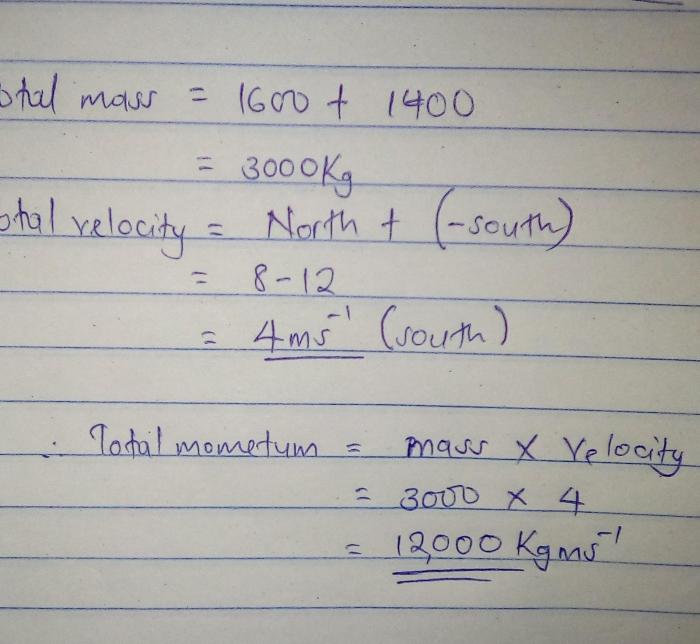 otal mass = 1600 + 1400
= 3000Kg
otal velocity = North + (-south)
= 8-12
= 4ms⁻¹ (south)
∴ Total mometum = mass x Velocity
= 3000 x 4
= 12,000 Kgms⁻¹